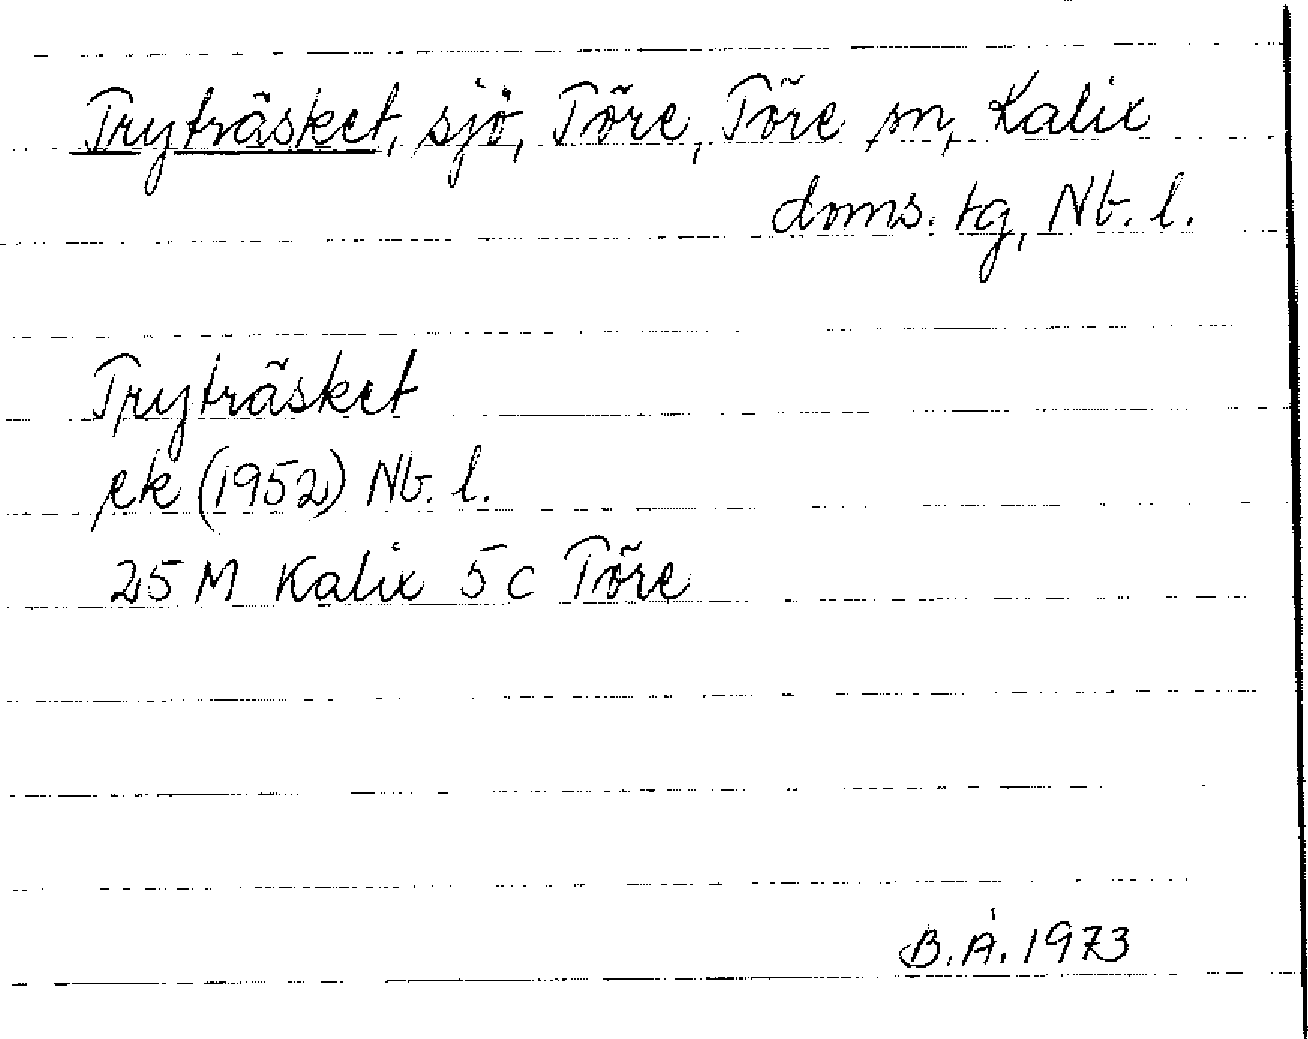 Tryträsket, sjö, Töre, Töre sn, Kalix
doms. tg, Nb. l.
Tryträsket
ek (1952) Nb. l.
25 M Kalix 5c Töre
B.Å. 1973